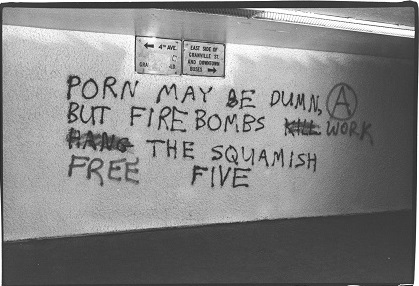 ← 4TH AVE.
EAST SIDE OF
GRANVILLE ST.
AND DOWNTOWN
BUSES →
PORN MAY BE DUMN, Ⓐ
BUT FIREBOMBS KILL WORK
HANG THE SQUAMISH
FREE FIVE